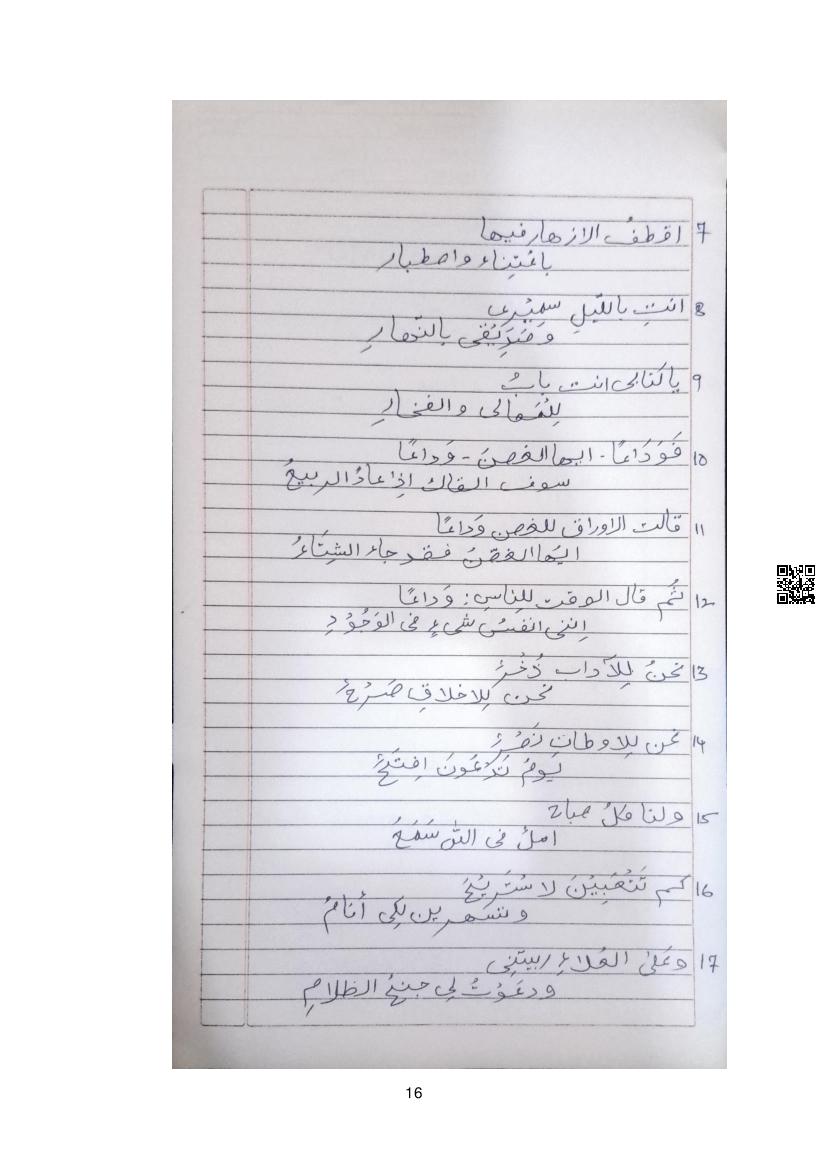 7 اقطفُ الازهار فيها
باعْتِناء واصطبار
8 انتِ بالليّلِ سمِيْرى
وَصَدِيْقى بالنّهارِ
9 ياكتابى انت بابُ
لِلْمَعالى والفخارِ
10 فَوَدَاعًا - ايها الغصنَ - وَداعًا
سوف القاك اِذا عادُ الربيعُ
11 قالت الاوراق للغصن وَداعًا
ايّها الغصْنُ فقد جاء الشِتَاءُ
12 ثُم قال الوقت لِلناسِ: وَداعًا
اِننى انفسُ شىءٍ فى الوَجُوْدِ
13 نحنُ لِلآداب ذُخْرٌ
نحن لِلاخلاقِ صَرْحٌ
14 نحن لِلاوطانِ نَصْرٌ
يَومُ تَدْعُونَ
15 ولنا كلُ صباح
املٌ فى اللّٰه سَمَعُ
16 كم تَتْعَبِيْنَ لا تَسْتَرِيْحَ
وتسهرين لِكى أنامُ
17 وعَلىٰ العُلاءِ ربيتِنِى
ودعَوْتُ لِى جنحُ الظلامِ
16